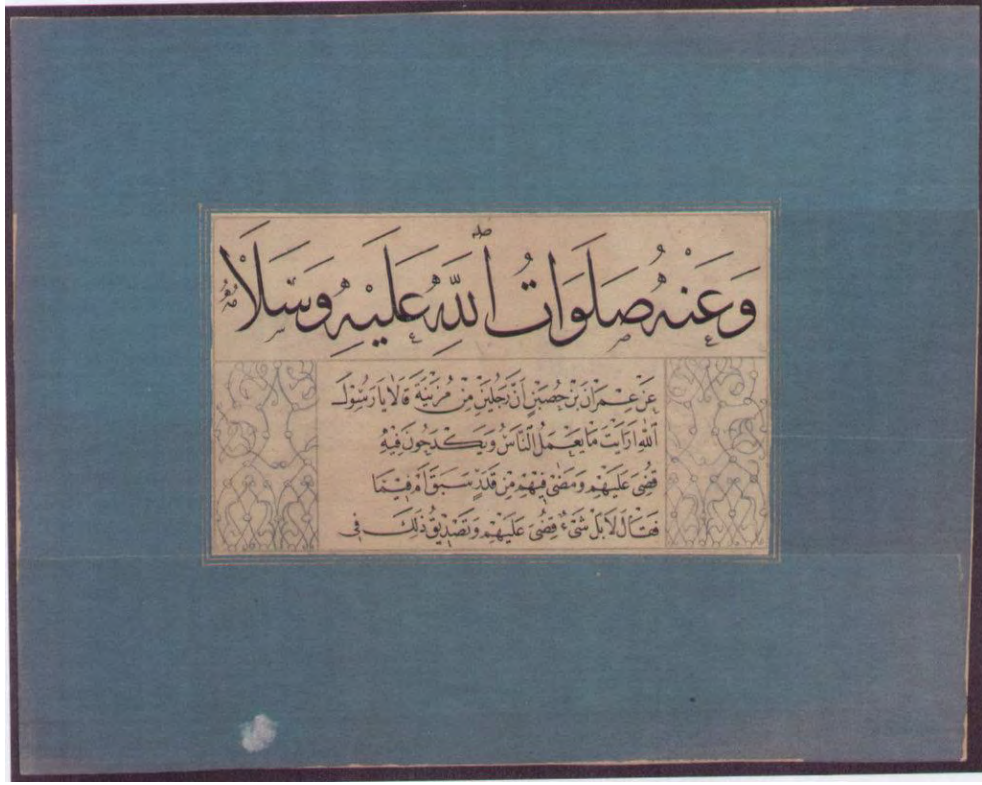 وَعَنْهُ صَلَوَاتُ اللَّهِ عَلَيْهِ وَسَلَامُهُ
عَنْ عِمْرَانَ بْنِ حُصَيْنٍ اَنَّ رَجُلَيْنِ مِنْ مُزَيْنَةَ قَالَا يَا رَسُوْلَ
اللّٰهِ اَرَاَيْتَ مَا يَعْمَلُ النَّاسُ وَيَكْدَحُونَ فِيْهِ
قُضِىَ عَلَيْهِمْ وَمَضٰى فِيْهِمْ مِنْ قَدَرٍ سَبَقَ اَمْ فِيْمَا
فَقَالَ لَا بَلْ شَىْءٌ قُضِىَ عَلَيْهِمْ وَتَصْدِيْقُ ذٰلِكَ فِى